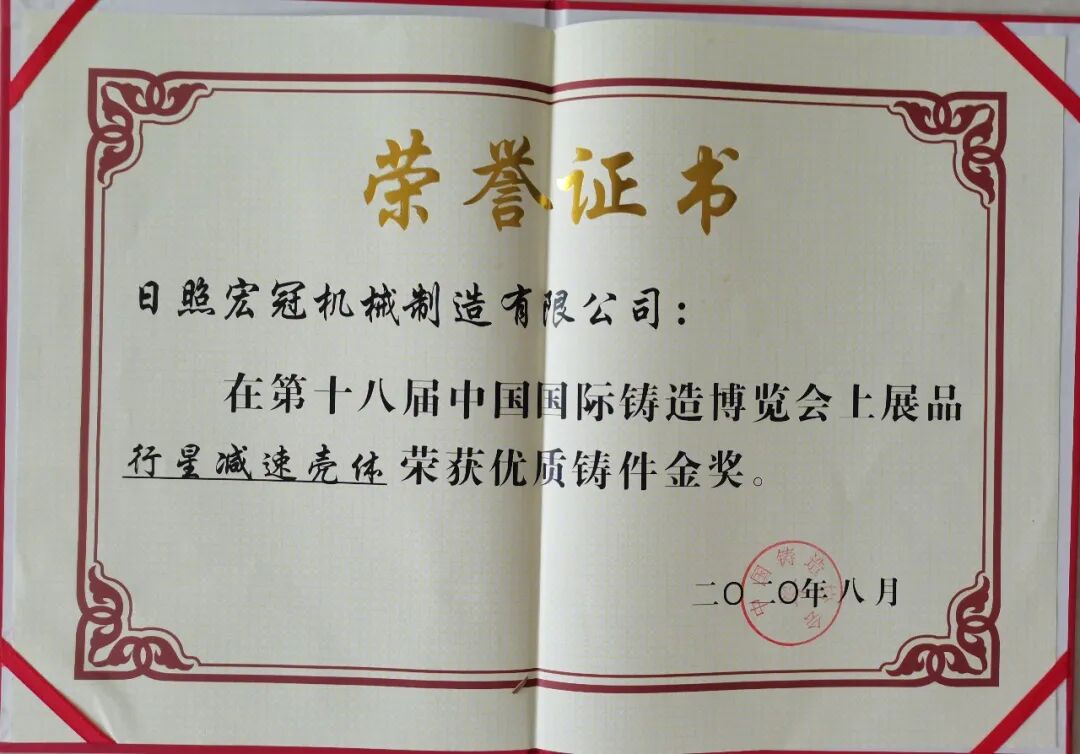 荣誉证书
日照宏冠机械制造有限公司：
在第十八届中国国际铸造博览会上展品
行星减速壳体荣获优质铸件金奖。
二〇二〇年八月
中国铸造协会